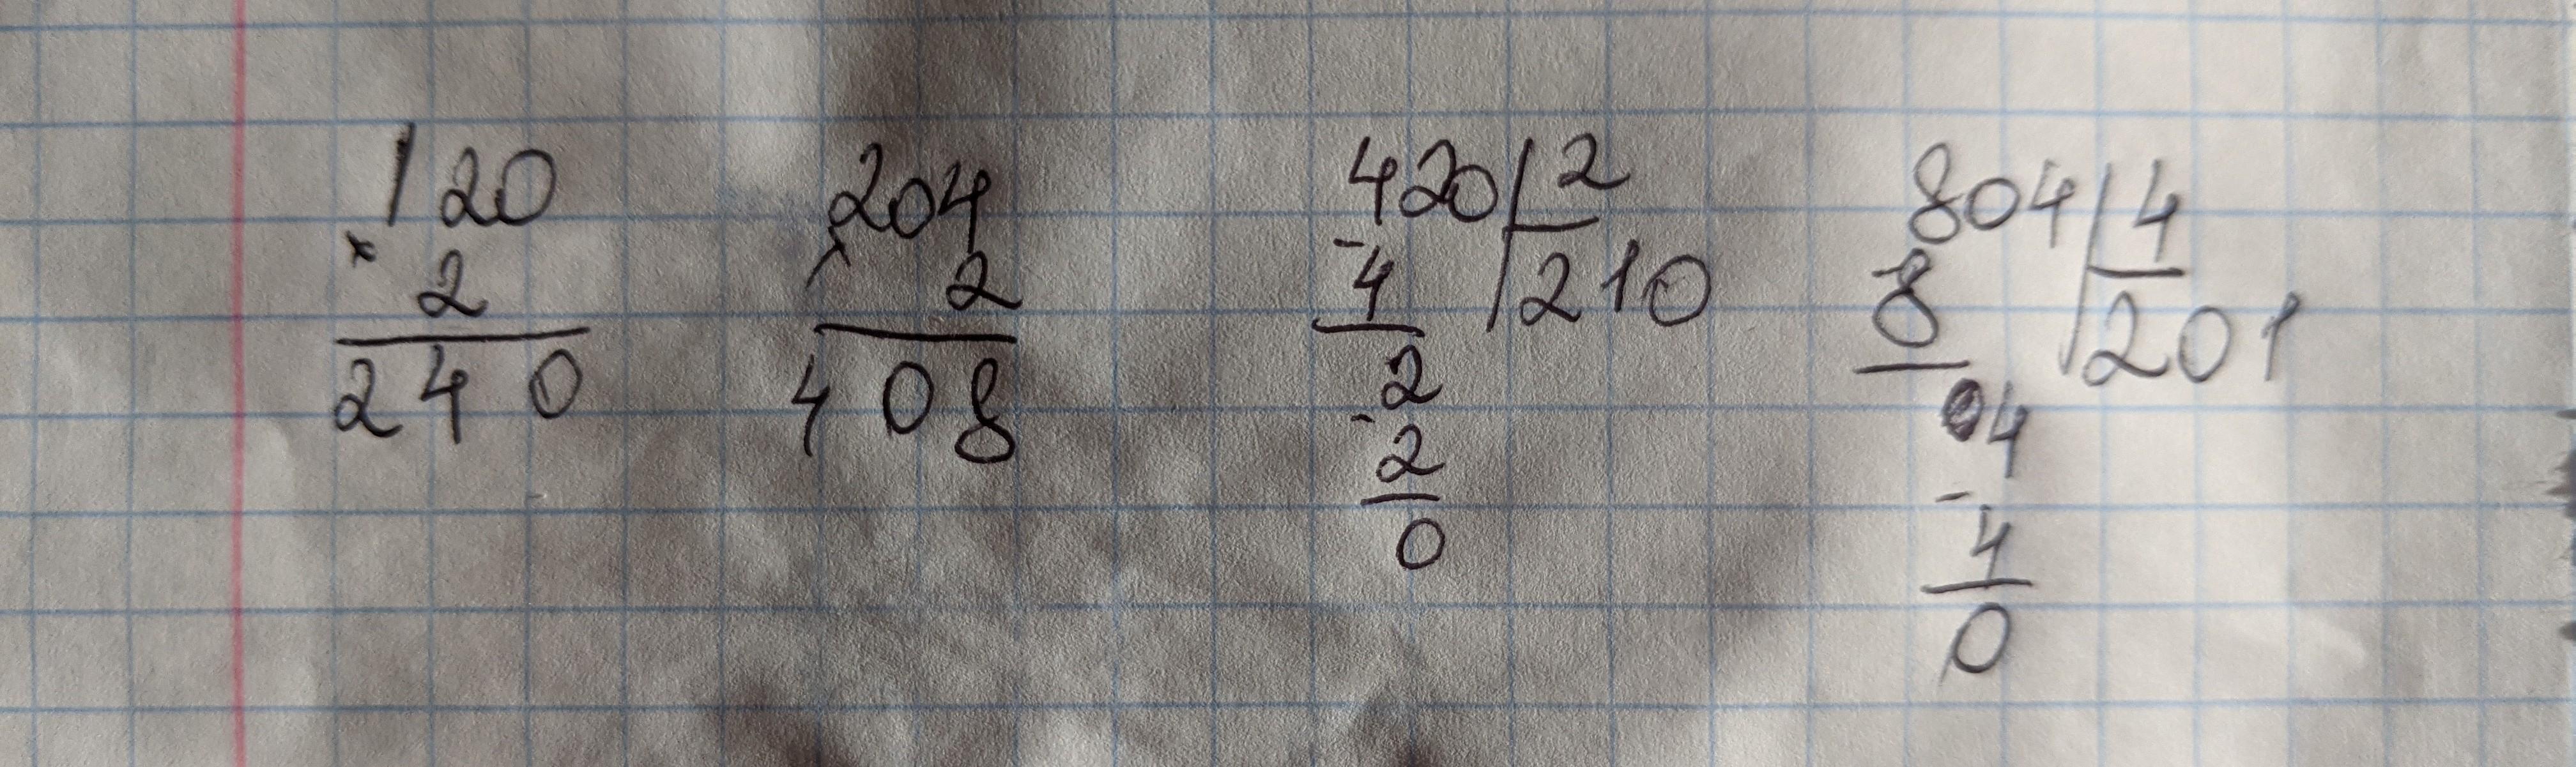 120
× 2
240
204
× 2
408
420 | 2
- 4 | 210
2
- 2
0
804 | 4
- 8 | 201
04
- 4
0